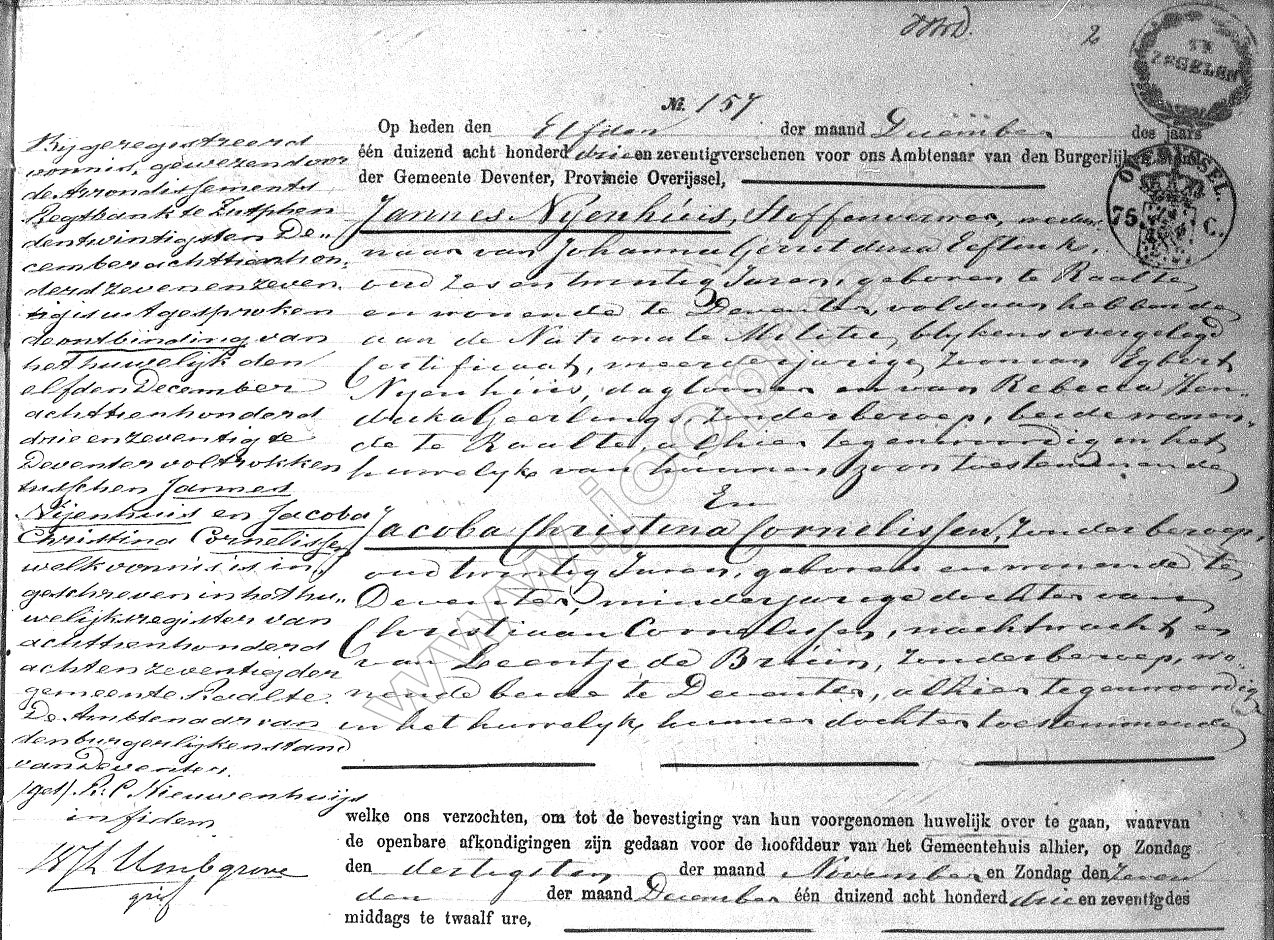 2
TE ZEGELEN
№. 157
Op heden den Elfden der maand December des jaars
één duizend acht honderd drie en zeventig verschenen voor ons Ambtenaar van den Burgerlijken
der Gemeente Deventer, Provincie Overijssel,
OVERYSSEL.
75 C.
Jannes Nijenhuis, Stoffenverwer, weduw-
naar van Johanna Gerritdina Eeftink,
oud zes en twintig Jaren, geboren te Raalte
en wonende te Deventer, voldaan hebbende
aan de Nationale Militie, blijkens overgelegd
Certificaat, meerderjarige zoon van Egbert
Nijenhuis, dagloner en van Rebecca Hen-
drika Geerlings, zonder beroep, beide wonen-
de te Raalte, alhier tegenwoordig in het
huwelijk van hunnen zoon toestemmende
En
Jacoba Christina Cornelissen, zonder beroep,
oud twintig Jaren, geboren en wonende te
Deventer, minderjarige dochter van
Christiaan Cornelissen, nachtwacht en
van Leentje de Bruin, zonder beroep, wo-
nende beide te Deventer, alhier tegenwoordig
in het huwelijk hunner dochter toestemmende
welke ons verzochten, om tot de bevestiging van hun voorgenomen huwelijk over te gaan, waarvan
de openbare afkondigingen zijn gedaan voor de hoofddeur van het Gemeentehuis alhier, op Zondag
den dertigsten der maand November en Zondag den Zeven
den der maand December één duizend acht honderd drie en zeventig des
middags te twaalf ure,
By geregistreerd
vonnis, gewezen door
de Arrondissements
Regtbank te Zutphen
den twintigsten De-
cember achttienhon-
derd zeven en zeven-
tig is uitgesproken
de ontbinding van
het huwelijk den
elfden December
achttienhonderd
drie en zeventig te
Deventer voltrokken
tusschen Jannes
Nijenhuis en Jacoba
Christina Cornelissen
welk vonnis is in-
geschreven in het hu-
welijksregister van
achttienhonderd
acht en zeventig der
gemeente Raalte.
De Ambtenaar van
den burgerlijken stand
van Deventer.
(get) K. C Nieuwenhuijs
in fidem
Umbgrove
grif